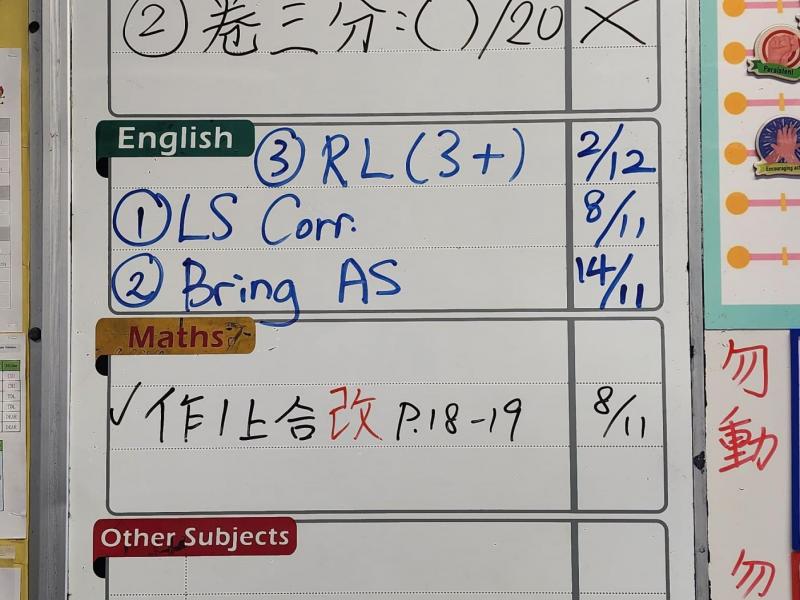 ② 卷三分:( )/20 ×
English
③ RL (3+) 2/12
① LS Corr. 8/11
② Bring AS 14/11
Maths
✓ 作1上合改 P.18-19 8/11
Other Subjects
Persistent
勿動
勿